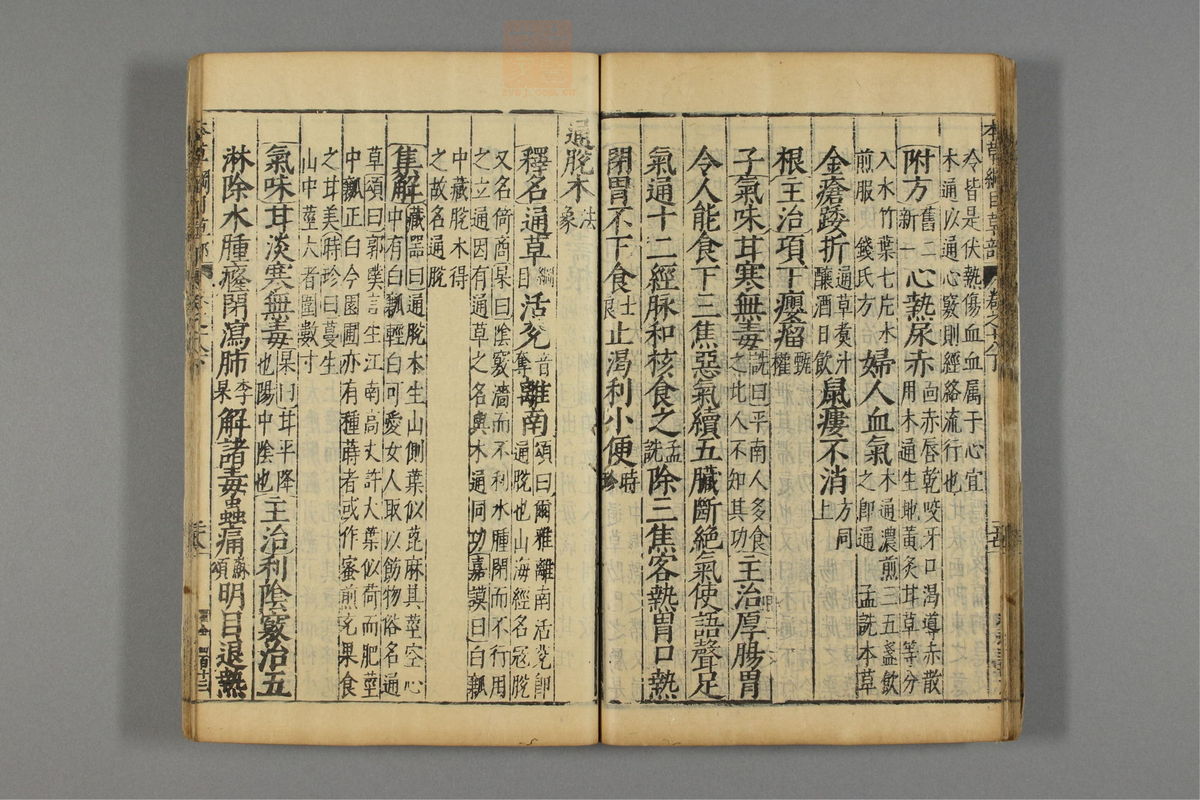 令皆是伏熱傷血血属于心宜
木通以通心竅則經絡流行也
附方舊二新一心熱尿赤面赤唇乾咬牙口渴導赤散用木通生地黃炙甘草等分
入水竹葉七片水煎服錢氏方婦人血氣木通濃煎三五盞飲之即通孟詵本草
金瘡踒折通草煑汁釀酒日飲鼠瘻不消方同上
根主治項下癭瘤甄權
子氣味甘寒無毒詵曰平南人多食之北人不知其功主治厚腸胃
令人能食下三焦惡氣續五臟斷絶氣使語聲足
氣通十二經脉和核食之孟詵除三焦客熱胃口熱
閉胃不下食士良止渴利小便時珍
通脫木法象
釋名通草綱目活克音奪離南頌曰爾雅離南活克即通脫也山海經名冠脫
又名倚商杲曰陰竅澀而不利水腫閉而不行用
之立通因有通草之名與木通同功嘉謨曰白瓤
中藏脫木得
之故名通脫
集解藏器曰通脫木生山側葉似萆麻其莖空心中有白瓤輕白可愛女人取以飾物俗名通
草頌曰郭璞言生江南高丈許大葉似荷而肥莖
中瓤正白今園圃亦有種蒔者或作蜜煎充果食
之甘美時珍曰蔓生
山中莖大者圍數寸
氣味甘淡寒無毒杲曰甘平降也陽中陰也主治利陰竅治五
淋除水腫癃閉瀉肺李杲解諸毒蟲痛蘇頌明目退熱